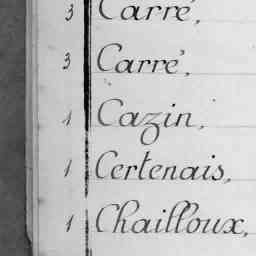 3 Carré,
3 Carré,
1 Cazin,
1 Certenais,
1 Chailloux,